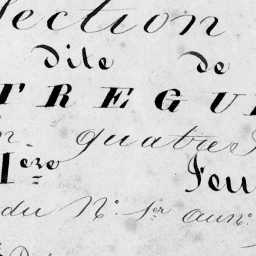 Section
dite de
TREGU
en quatre
1ere Feu
du N° 1er au N°